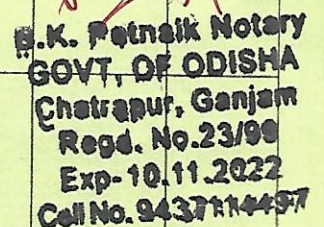 B.K. Patnaik Notary
GOVT, OF ODISHA
Chatrapur, Ganjam
Regd. No.23/99
Exp-10.11.2022
Cell No.